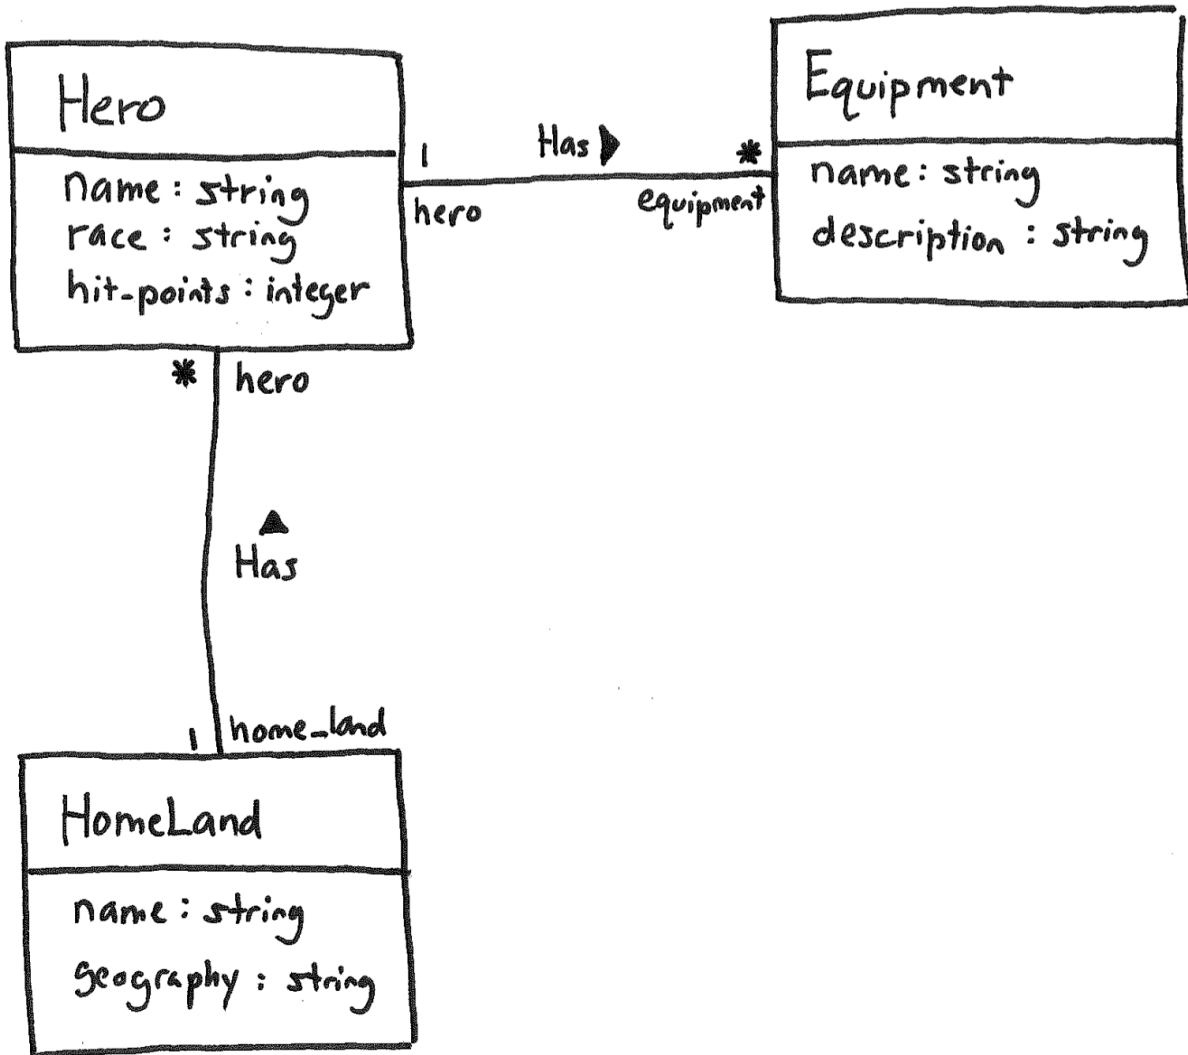 Hero
name : string
race : string
hit-points : integer
1
Has ▶
*
hero
equipment
Equipment
name : string
description : string
*
hero
▲
Has
1
home_land
HomeLand
name : string
geography : string